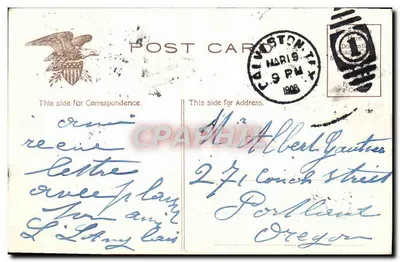 POST CARD
GALVESTON, TEX
MAR 19
9 PM
1908
1
This side for Correspondence.
This side for Address.
ami
recue
lettre
avec plaisir
ton ami
L. L'Anglais
Mr Albert Gautier
271 Couch Street
Portland
Oregon
PICCLICK